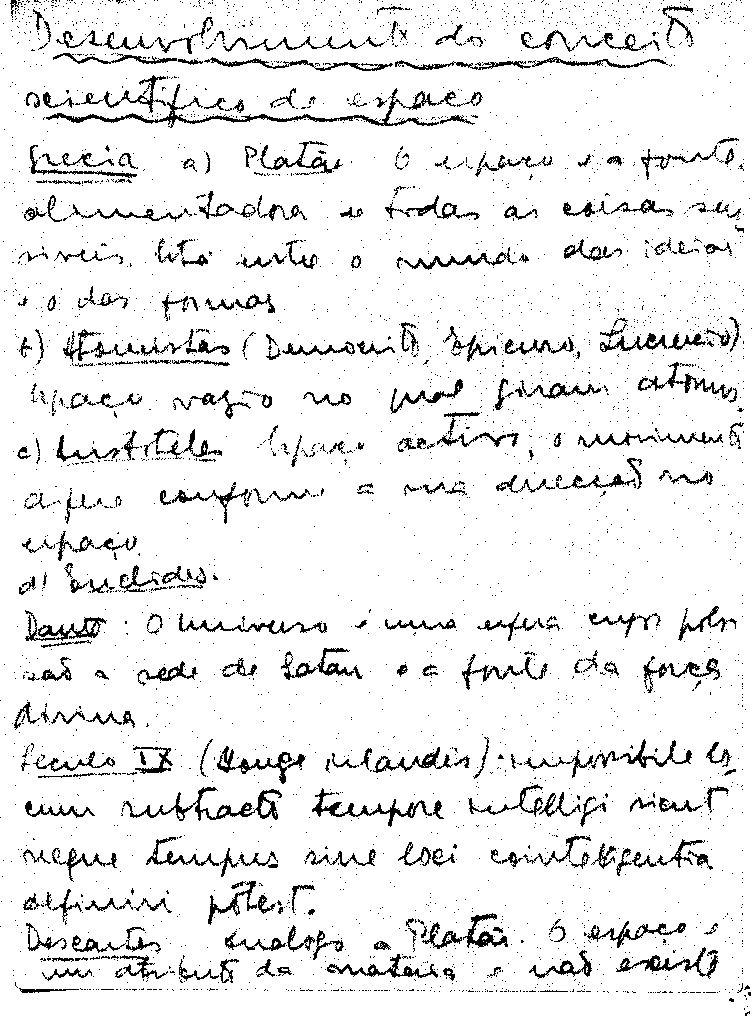 Desenvolvimento do conceito
scientifico de espaço
Grecia a) Platão O espaço e a fonte
alimentadora de todas as coisas sen
siveis, está entre o mundo das ideias
e o das formas
b) Atomistas (Democrito, Epicuro, Lucrecio)
Espaço vazio no qual giram atomos.
c) Aristoteles Espaço activo, o movimento
difere conforme a sua direcção no
espaço
d) Euclides.
Dante : O Universo é uma esfera cujos polos
são a sede de Satan e a fonte da força
divina.
Seculo IX (Monge irlandês) impossibile lo
cum subtracto tempore intelligi sicut
neque tempus sine loci cointelligentia
definiri potest.
Descartes Analogo a Platão. O espaço é
um atributo da materia e não existe